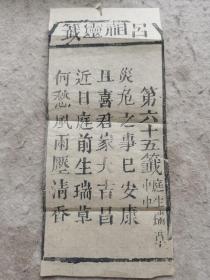 呂祖靈籤
第六十五籤 中中 庭生瑞草
災危之事已安康
且喜君家大吉昌
近日庭前生瑞草
何愁風雨壓清香